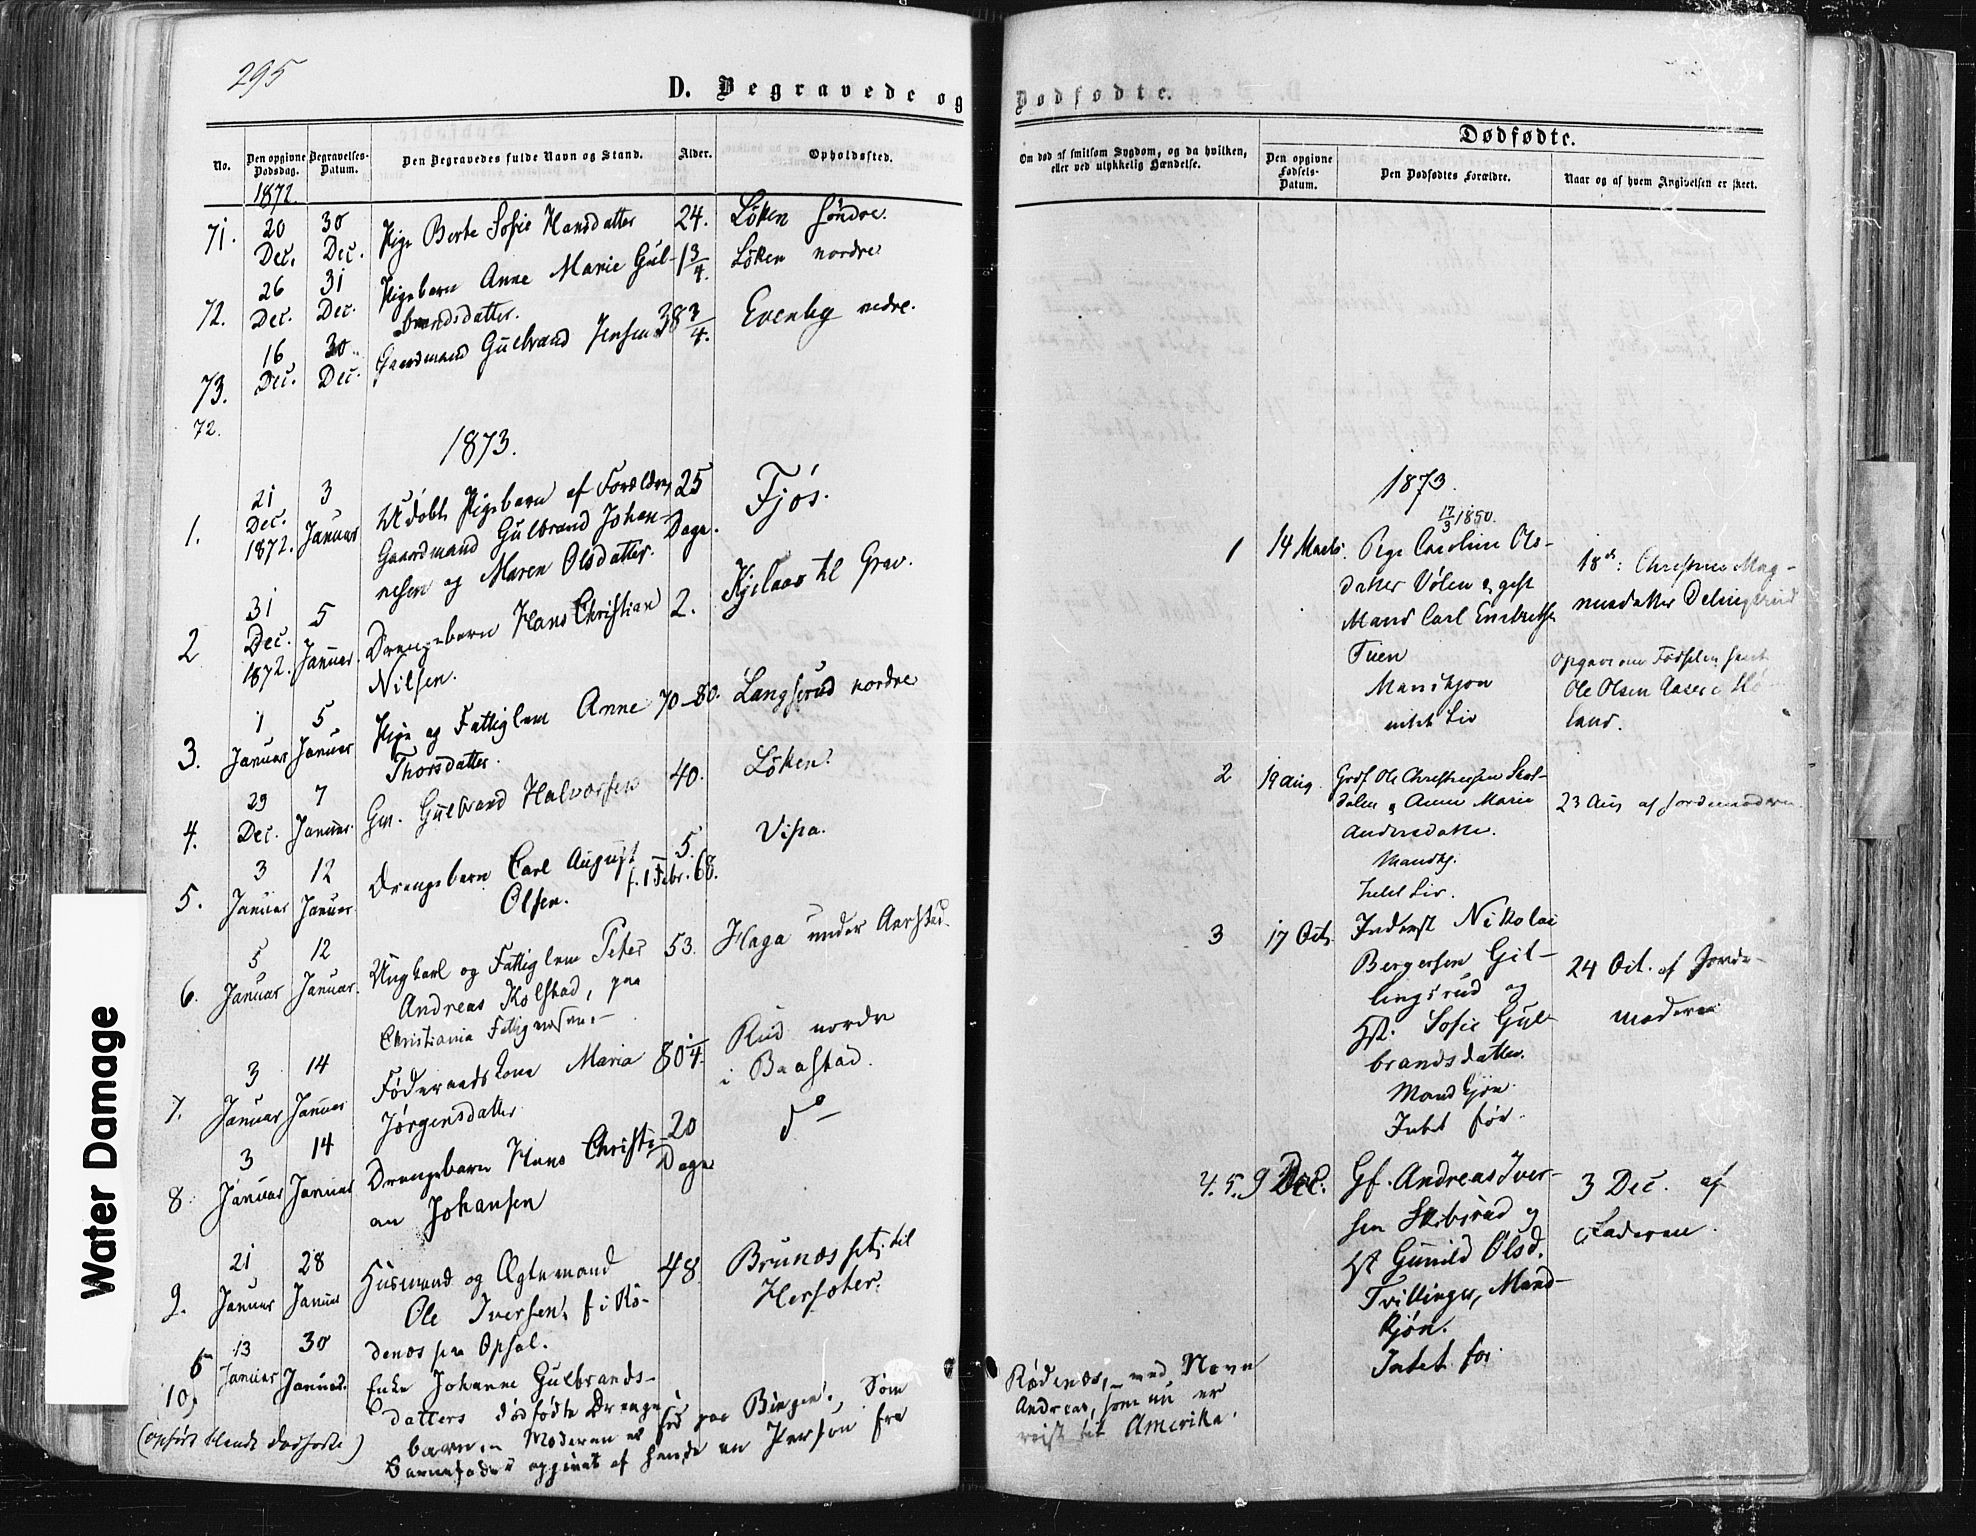 295
D. Begravede og
No.
Den opgivne Dødsdag.
Begravelses-Datum.
Den Begravedes fulde Navn og Stand.
Alder.
Opholdssted.
1872.
71. 20 Dec. 30 Dec. Pige Berte Sofie Hansdatter 24. Løken søndre.
72. 26 Dec. 31 Dec. Pigebarn Anne Marie Gul- 1 3/4. Løken nordre
brandsdatter.
73. 16 Dec. 30 Dec. Gaardmand Gulbrand Jensen 38 3/4. Evenby nedre.
72.
1873.
1. 21 Dec. 1872. 3 Januar Udøbt Pigebarn af Forældre 25 Dage. Fjøs.
Gaardmand Gulbrand Johan-
nesen og Maren Olsdatter.
2 31 Dec. 1872. 5 Januar. Drengebarn Hans Christian 2. Kjelaas til Grav.
Nilsen.
3. 1 Januar 5 Januar Pige og Fattiglem Anne 70-80. Langserud nordre
Thorsdatter.
4. 29 Dec. 7 Januar. Gm. Gulbrand Halvorsen 40. Løken.
5. 3 Januar 12 Januar Drengebarn Carl August 5. Visa.
Olsen. f. 1 Febr. 68.
6. 5 Januar 12 Januar. Ungkarl og Fattiglem Peter 53. Haga under Aarstad.
Andreas Kolstad, paa
Christiania Fattigvæsen.
7. 3 Januar 14 Januar Føderaadskone Maria 80 1/4. Rud nordre
Jørgensdatter i Baastad.
8. 3 Januar 14 Januar Drengebarn Hans Christi- 20 Dage do
an Johansen
9. 21 Januar 28 Januar Husmand og Ægtemand 48. Brunæs pl. til
Ole Iversen, f. i Rø- Hersæter.
denæs paa Opsal.
10, 13 Januar 30 Januar. Enke Johanne Gulbrands-
datters dødfødte Drenge
(opført blandt dødfødte) barn. Moderen er fød paa Bingen, Som
Barnefader opgivet af hende en Person fra
Dødfødte.
Om død af smitsom Sygdom, og da hvilken,
eller ved ulykkelig Hændelse.
Dødfødte.
Den opgivne Fødsels-Datum.
Den Dødfødtes Forældre.
Naar og af hvem Angivelsen er skeet.
1873.
17/3 1850.
1 14 Marts. Pige Caroline Ols- 18de: Christine Mag-
datter Vølen & gift nusdatter
Mand Carl
Tuen Opgave om Fødselen skeet
Mandkjøn Ole Olsen Aaser i Hø-
intet Liv land.
2 19 Aug Grdf Ole Christensen
dalen & Anne Marie 23 Aug af Jordmoderen
Andersdatter.
Mandkj.
Intet Liv.
3 17 Oct. Inderst Nikolai
Bergersen Git- 24 Oct. af Jorde-
lingsrud og moderen
Hst. Sofie Gul-
brandsdatter.
Mandkjøn.
Intet før.
4. 5. 9 Dec. Gf. Andreas Iver- 3 Dec. af
sen Skibsrud og Faderen.
Hst Gunild Olsd.
Tvillinger, Mand-
kjøn.
Intet før.
Rødenæs, med Navn
Andreas, som nu er
reist til Amerika.
Water Damage